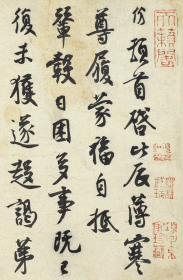 份頓首啓比辰薄寒
尊履蒙福自抵
輦轂日困多事
復未獲遂趨謁第
天籟閣